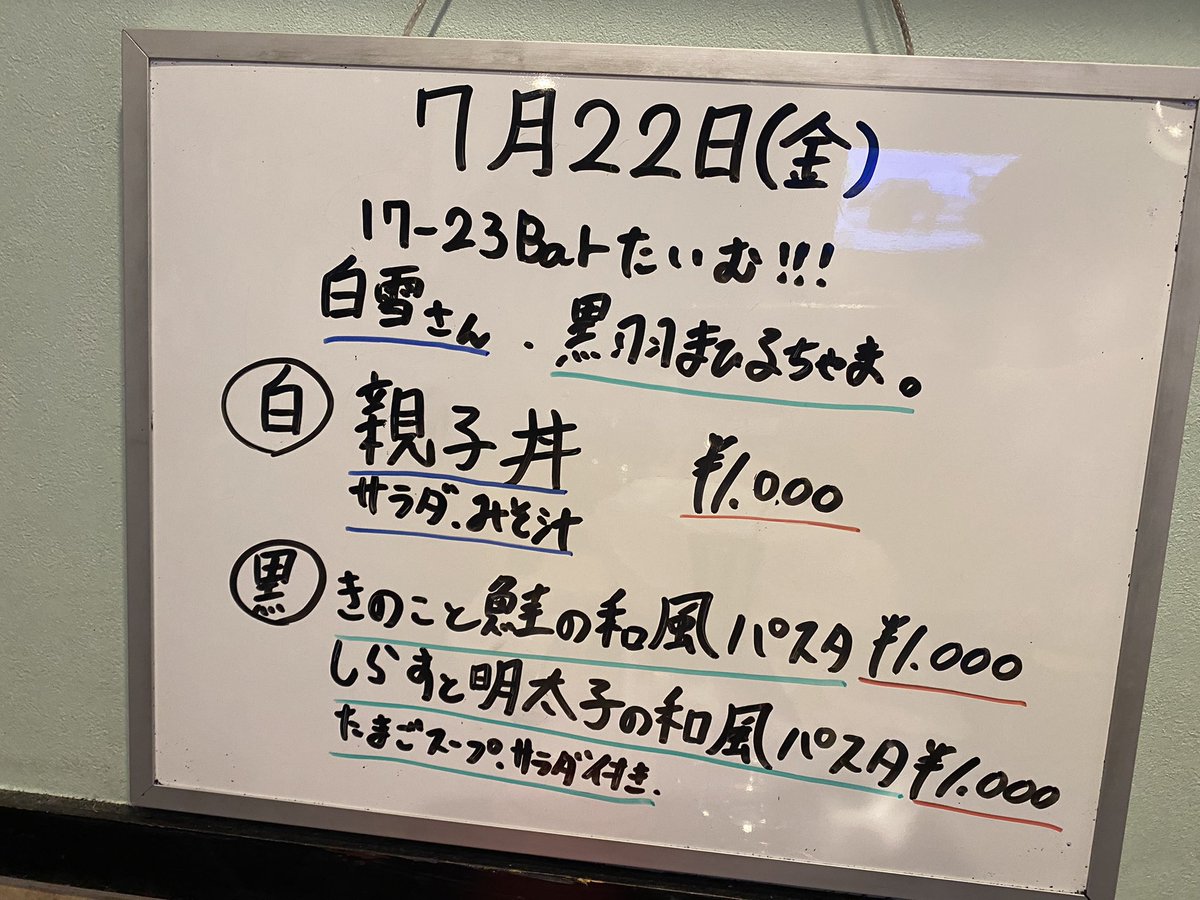 7月22日(金)
17-23Barたいむ!!!
白雪さん . 黒羽まひるちゃま。
白 親子丼 ¥1.000
サラダ.みそ汁
黒 きのこと鮭の和風パスタ ¥1.000
しらすと明太子の和風パスタ ¥1.000
たまごスープ.サラダ付き.